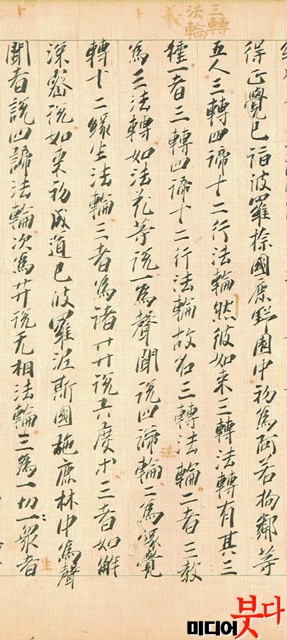 三轉
法輪
義
得正覺已詣彼羅捺國鹿野園中初為阿若拘鄰等
五人三轉四諦十二行法輪然彼如来三轉法轉有其三
種一者三轉四諦十二行法輪故名三轉法輪二者三教
為三法轉如法花等説一為聲聞説四諦輪二為縁覺
轉十二縁生法輪三者為諸卄卄説六度
三者如解
深密説如来初成道已波羅泥斯國施鹿林中為聲
聞者説四諦法輪次為卄説无相法輪三為一切一衆者
法
生
미디어붓다